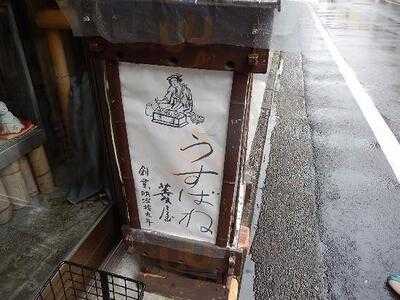 うすばね
菱屋
創業明治拾九年